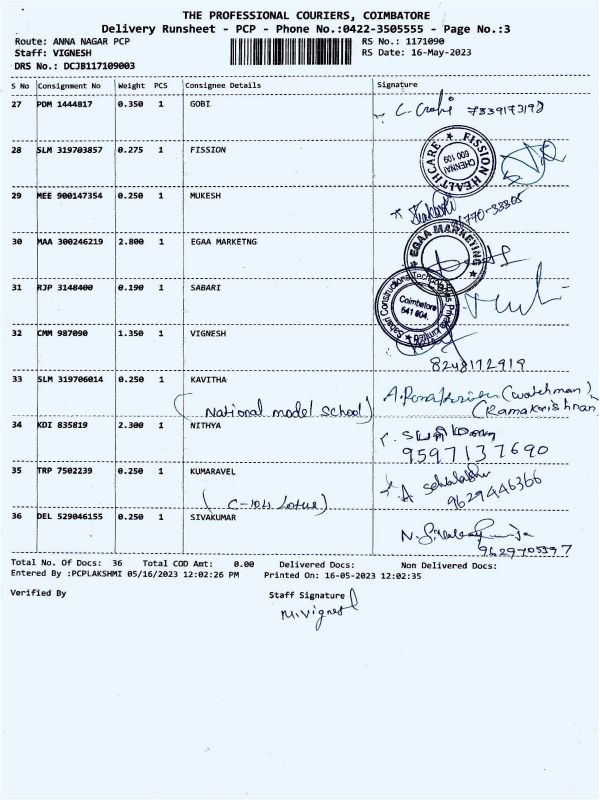 THE PROFESSIONAL COURIERS, COIMBATORE
Delivery Runsheet - PCP - Phone No.:0422-3505555 - Page No.:3
Route: ANNA NAGAR PCP RS No.: 1171090
Staff: VIGNESH RS Date: 16-May-2023
DRS No.: DCJB117109003
S No Consignment No Weight PCS Consignee Details Signature
27 PDM 1444817 0.350 1 GOBI
28 SLM 319703857 0.275 1 FISSION
FISSION HEALTHCARE CHENNAI 600 109
29 MEE 900147354 0.250 1 MUKESH
30 MAA 300246219 2.800 1 EGAA MARKETNG
EGAA MARKETING
31 RJP 3148400 0.190 1 SABARI
Coimbatore 641 004.
32 CMM 987090 1.350 1 VIGNESH
8248172919
33 SLM 319706014 0.250 1 KAVITHA
(National model school) (watchman)
(Ramakrishnan)
34 KDI 835819 2.300 1 NITHYA
9597137690
35 TRP 7502239 0.250 1 KUMARAVEL
9629446366
(C-104 Lotus)
36 DEL 529046155 0.250 1 SIVAKUMAR
Total No. Of Docs: 36 Total COD Amt: 0.00 Delivered Docs: Non Delivered Docs:
Entered By :PCPLAKSHMI 05/16/2023 12:02:26 PM Printed On: 16-05-2023 12:02:35
Verified By Staff Signature
M.Vignesh